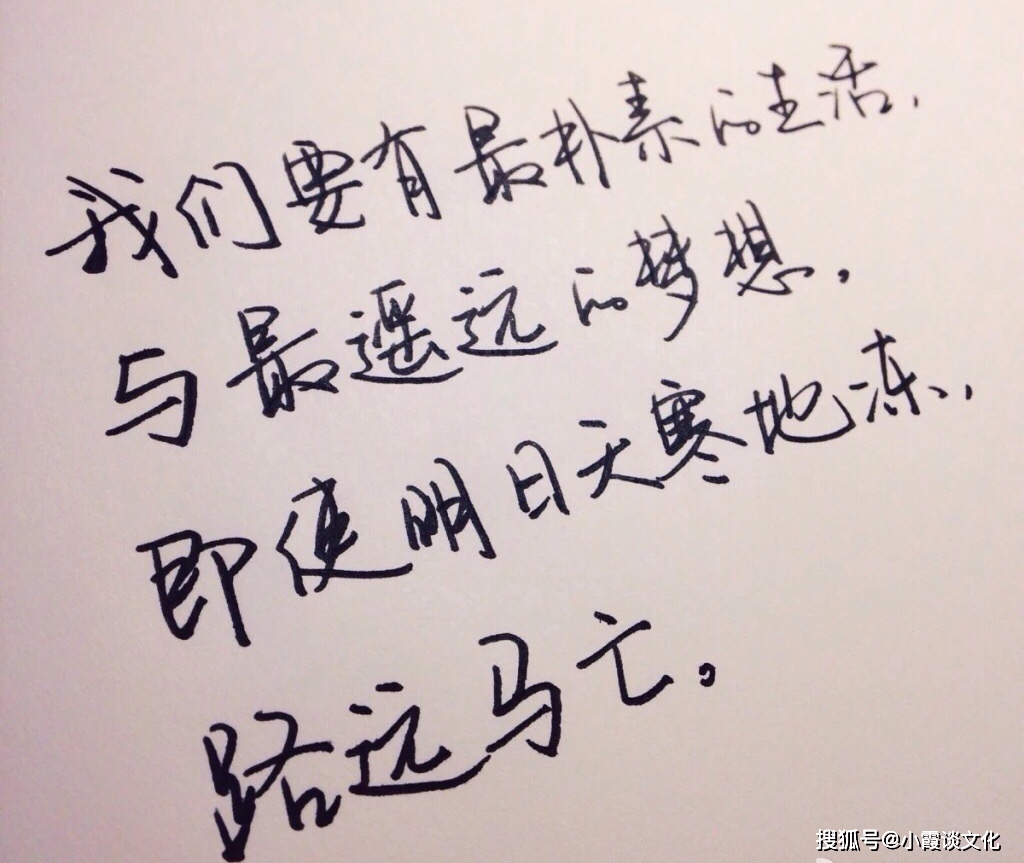 我们要有最朴素的生活,
与最遥远的梦想.
即使明日天寒地冻,
路远马亡。
搜狐号@小霞谈文化